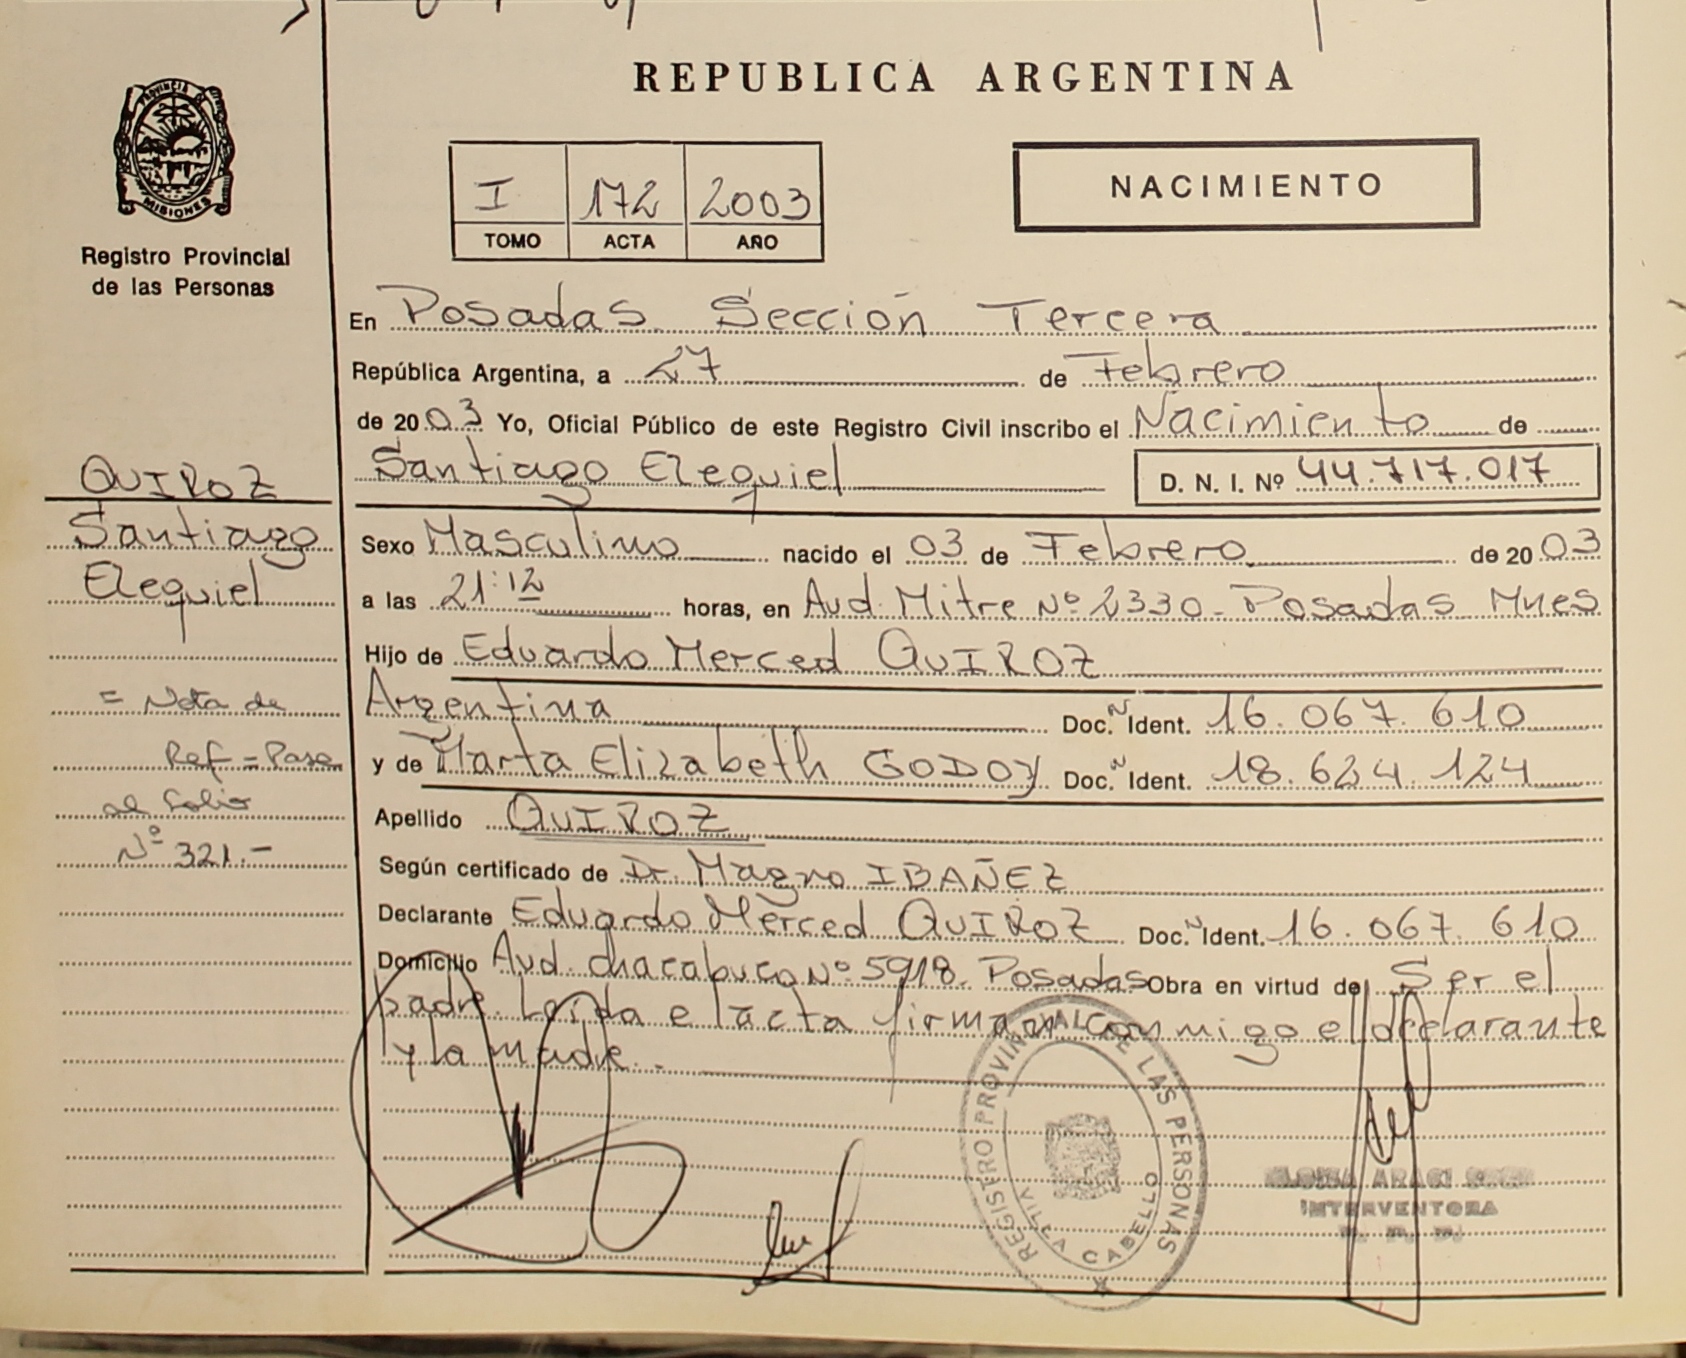 REPUBLICA ARGENTINA
PROVINCIA DE
MISIONES
Registro Provincial
de las Personas
I 172 2003
TOMO ACTA AÑO
NACIMIENTO
En Posadas Sección Tercera
República Argentina, a 27 de Febrero
de 2003 Yo, Oficial Público de este Registro Civil inscribo el Nacimiento de
Santiago Ezequiel D. N. I. Nº 44.717.017
QUIROZ
Santiago
Ezequiel
= Nota de
Ref = Pase
al Folio
Nº 321.-
Sexo Masculino nacido el 03 de Febrero de 2003
a las 21:12 horas, en Avd. Mitre Nº 2330 - Posadas Mnes
Hijo de Eduardo Merced QUIROZ
Argentina Doc. N Ident. 16.067.610
y de Marta Elizabeth GODOY Doc. N Ident. 18.624.124
Apellido QUIROZ
Según certificado de Dr. Magno IBAÑEZ
Declarante Eduardo Merced QUIROZ Doc. N Ident. 16.067.610
Domicilio Avd. chacabuco Nº 5918. Posadas Obra en virtud de Ser el
padre. Leída e l acta firman conmigo el declarante
y la madre. -
REGISTRO PROVINCIAL DE LAS PERSONAS
VILLA CABELLO
ARACI
INTERVENTORA
R. P. P.